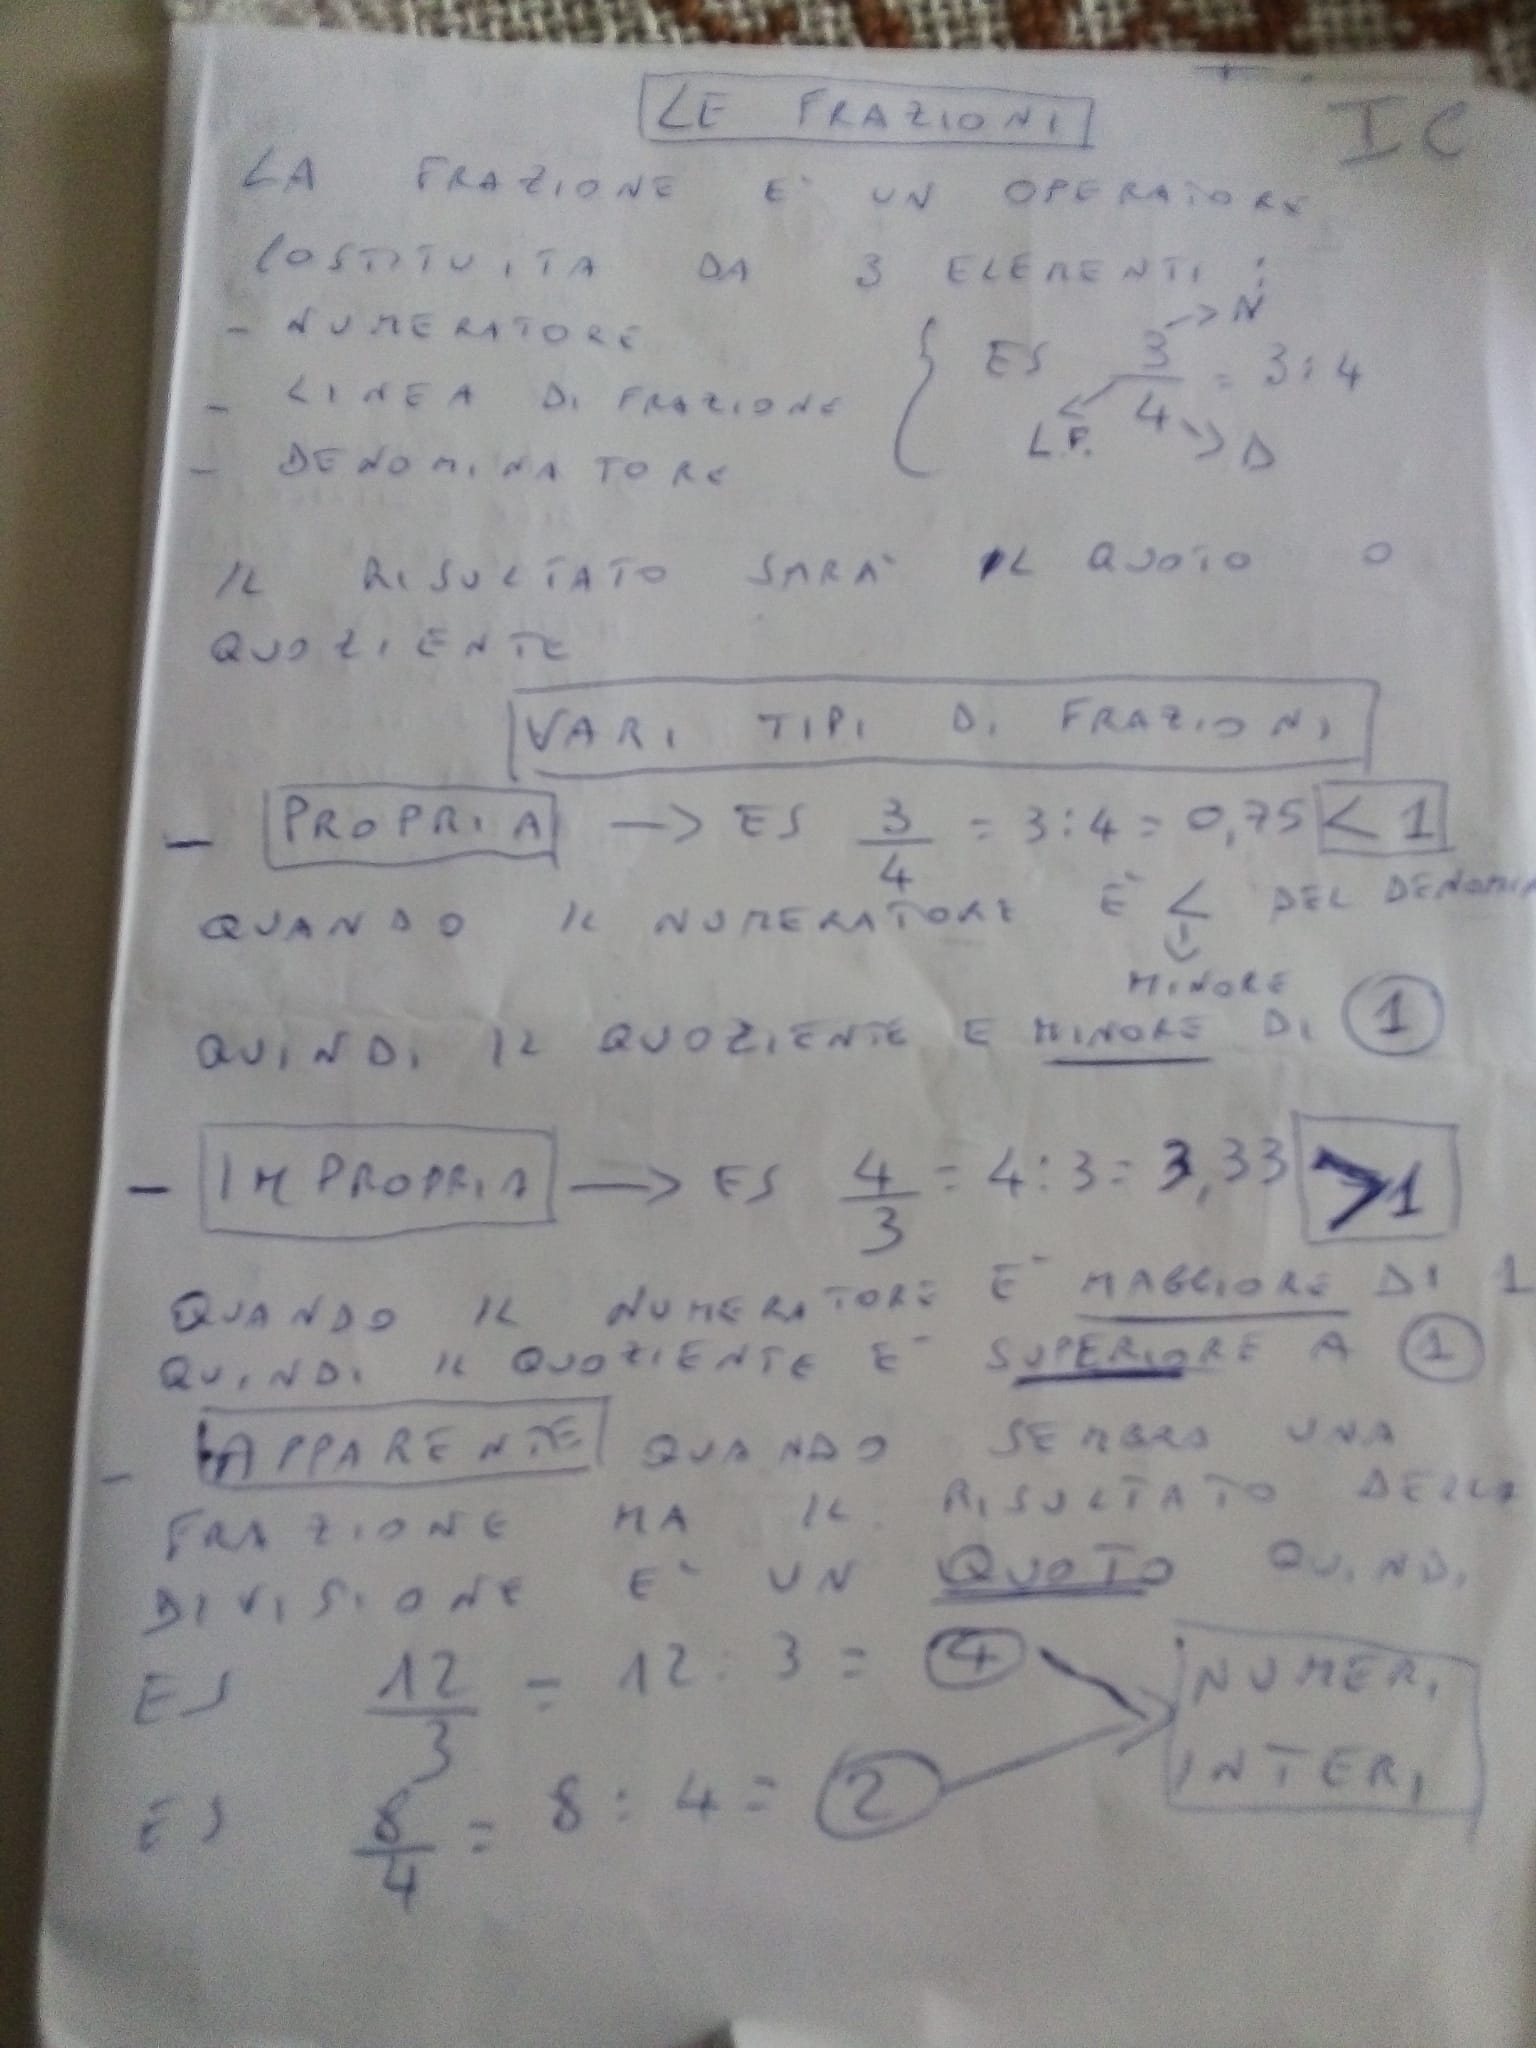 LE FRAZIONI
IC
LA FRAZIONE E' UN OPERATORE
COSTITUITA DA 3 ELEMENTI :
- NUMERATORE
- LINEA DI FRAZIONE
- DENOMINATORE
{ ES 3/4 = 3:4
-> N
L.F.
-> D
IL RISULTATO SARA' IL QUOTO O
QUOZIENTE
VARI TIPI DI FRAZIONI
- PROPRIA -> ES 3/4 = 3:4 = 0,75 < 1
QUANDO IL NUMERATORE E' < DEL DENOMIN
MINORE
QUINDI IL QUOZIENTE E MINORE DI 1
- IMPROPRIA -> ES 4/3 = 4:3 = 3,33 >1
QUANDO IL NUMERATORE E' MAGGIORE DI 1
QUINDI IL QUOZIENTE E' SUPERIORE A 1
- APPARENTE QUANDO SEMBRA UNA
FRAZIONE MA IL RISULTATO DELLA
DIVISIONE E' UN QUOTO QUINDI
ES 12/3 = 12:3 = 4
ES 8/4 = 8:4 = 2
NUMERI
INTERI